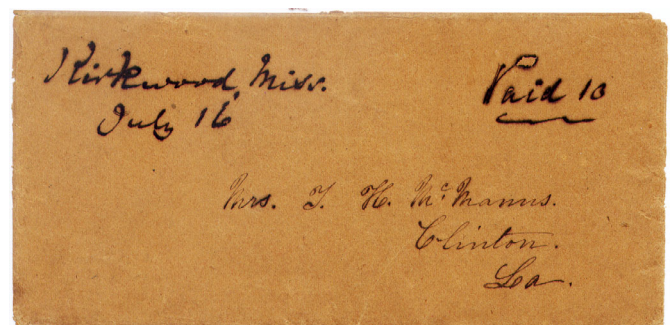 Kirkwood, Miss.
July 16
Paid 10
Mrs. T. H. McManus.
Clinton.
La.